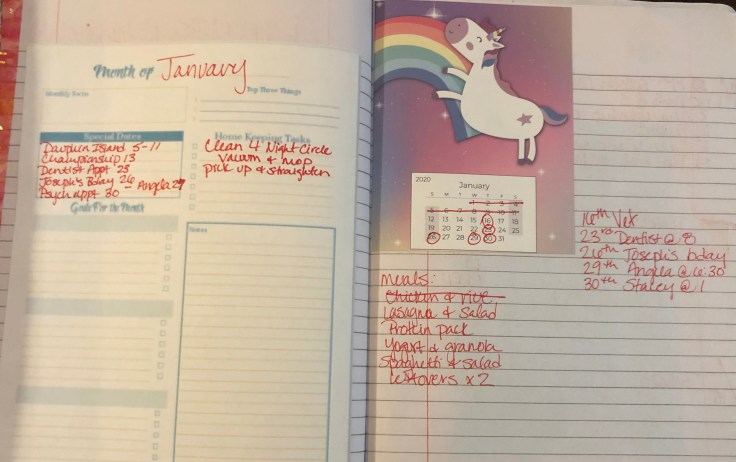 Month of January
Top Three Things
Special Dates
Dauphin Island 5-11
Championship 13
Dentist Appt 23
Joseph's Bday 26 - Angela 29
Psych appt 30
Goals For the Month
Home Keeping Tasks
Clean 4 Night Circle
Vacum & mop
pick up & straighten
Notes
2020
January
S M T W T F S
1 2 3 4
5 6 7 8 9 10 11
12 13 14 15 16 17 18
19 20 21 22 23 24 25
26 27 28 29 30 31
16th Vet
23rd Dentist @ 8
26th Joseph's bday
29th Angela @ 6:30
30th Stacey @ 1
meals:
Chicken & rice
Lasagna & Salad
Protein pack
Yogurt & granola
Spaghetti & salad
Leftovers x 2